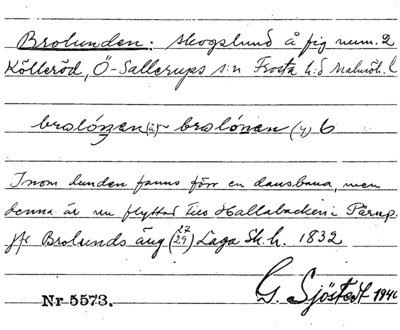 Brolunden: skogslund å fig num. 2
Kölleröd, Ö-Sallerups s:n Frosta h:d Malmöh. l
brolónen (ä) ~ brolónen (y) b
Inom lunden fanns förr en dansbana, men
denna är nu flyttad till Hallabacken i Pårup.
jfr Brolunds äng (27 29) Laga Sk. h. 1832
Nr 5573.
G. Sjöstedt 1940